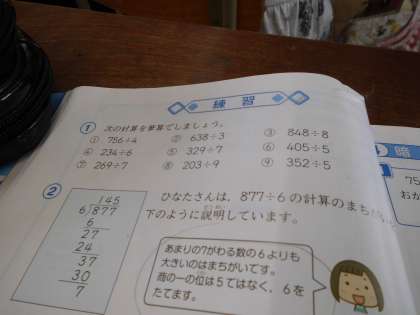 練習
1 次の計算を筆算でしましょう。
① 756÷4 ② 638÷3 ③ 848÷8
④ 234÷6 ⑤ 329÷7 ⑥ 405÷5
⑦ 269÷7 ⑧ 203÷9 ⑨ 352÷5
2
145
6)877
6
27
24
37
30
7
ひなたさんは、877÷6 の計算のまち
下のように説明しています。
あまりの7がわる数の6よりも
大きいのはまちがいです。
商の一の位は5ではなく、6を
たてます。
暗
75
おか